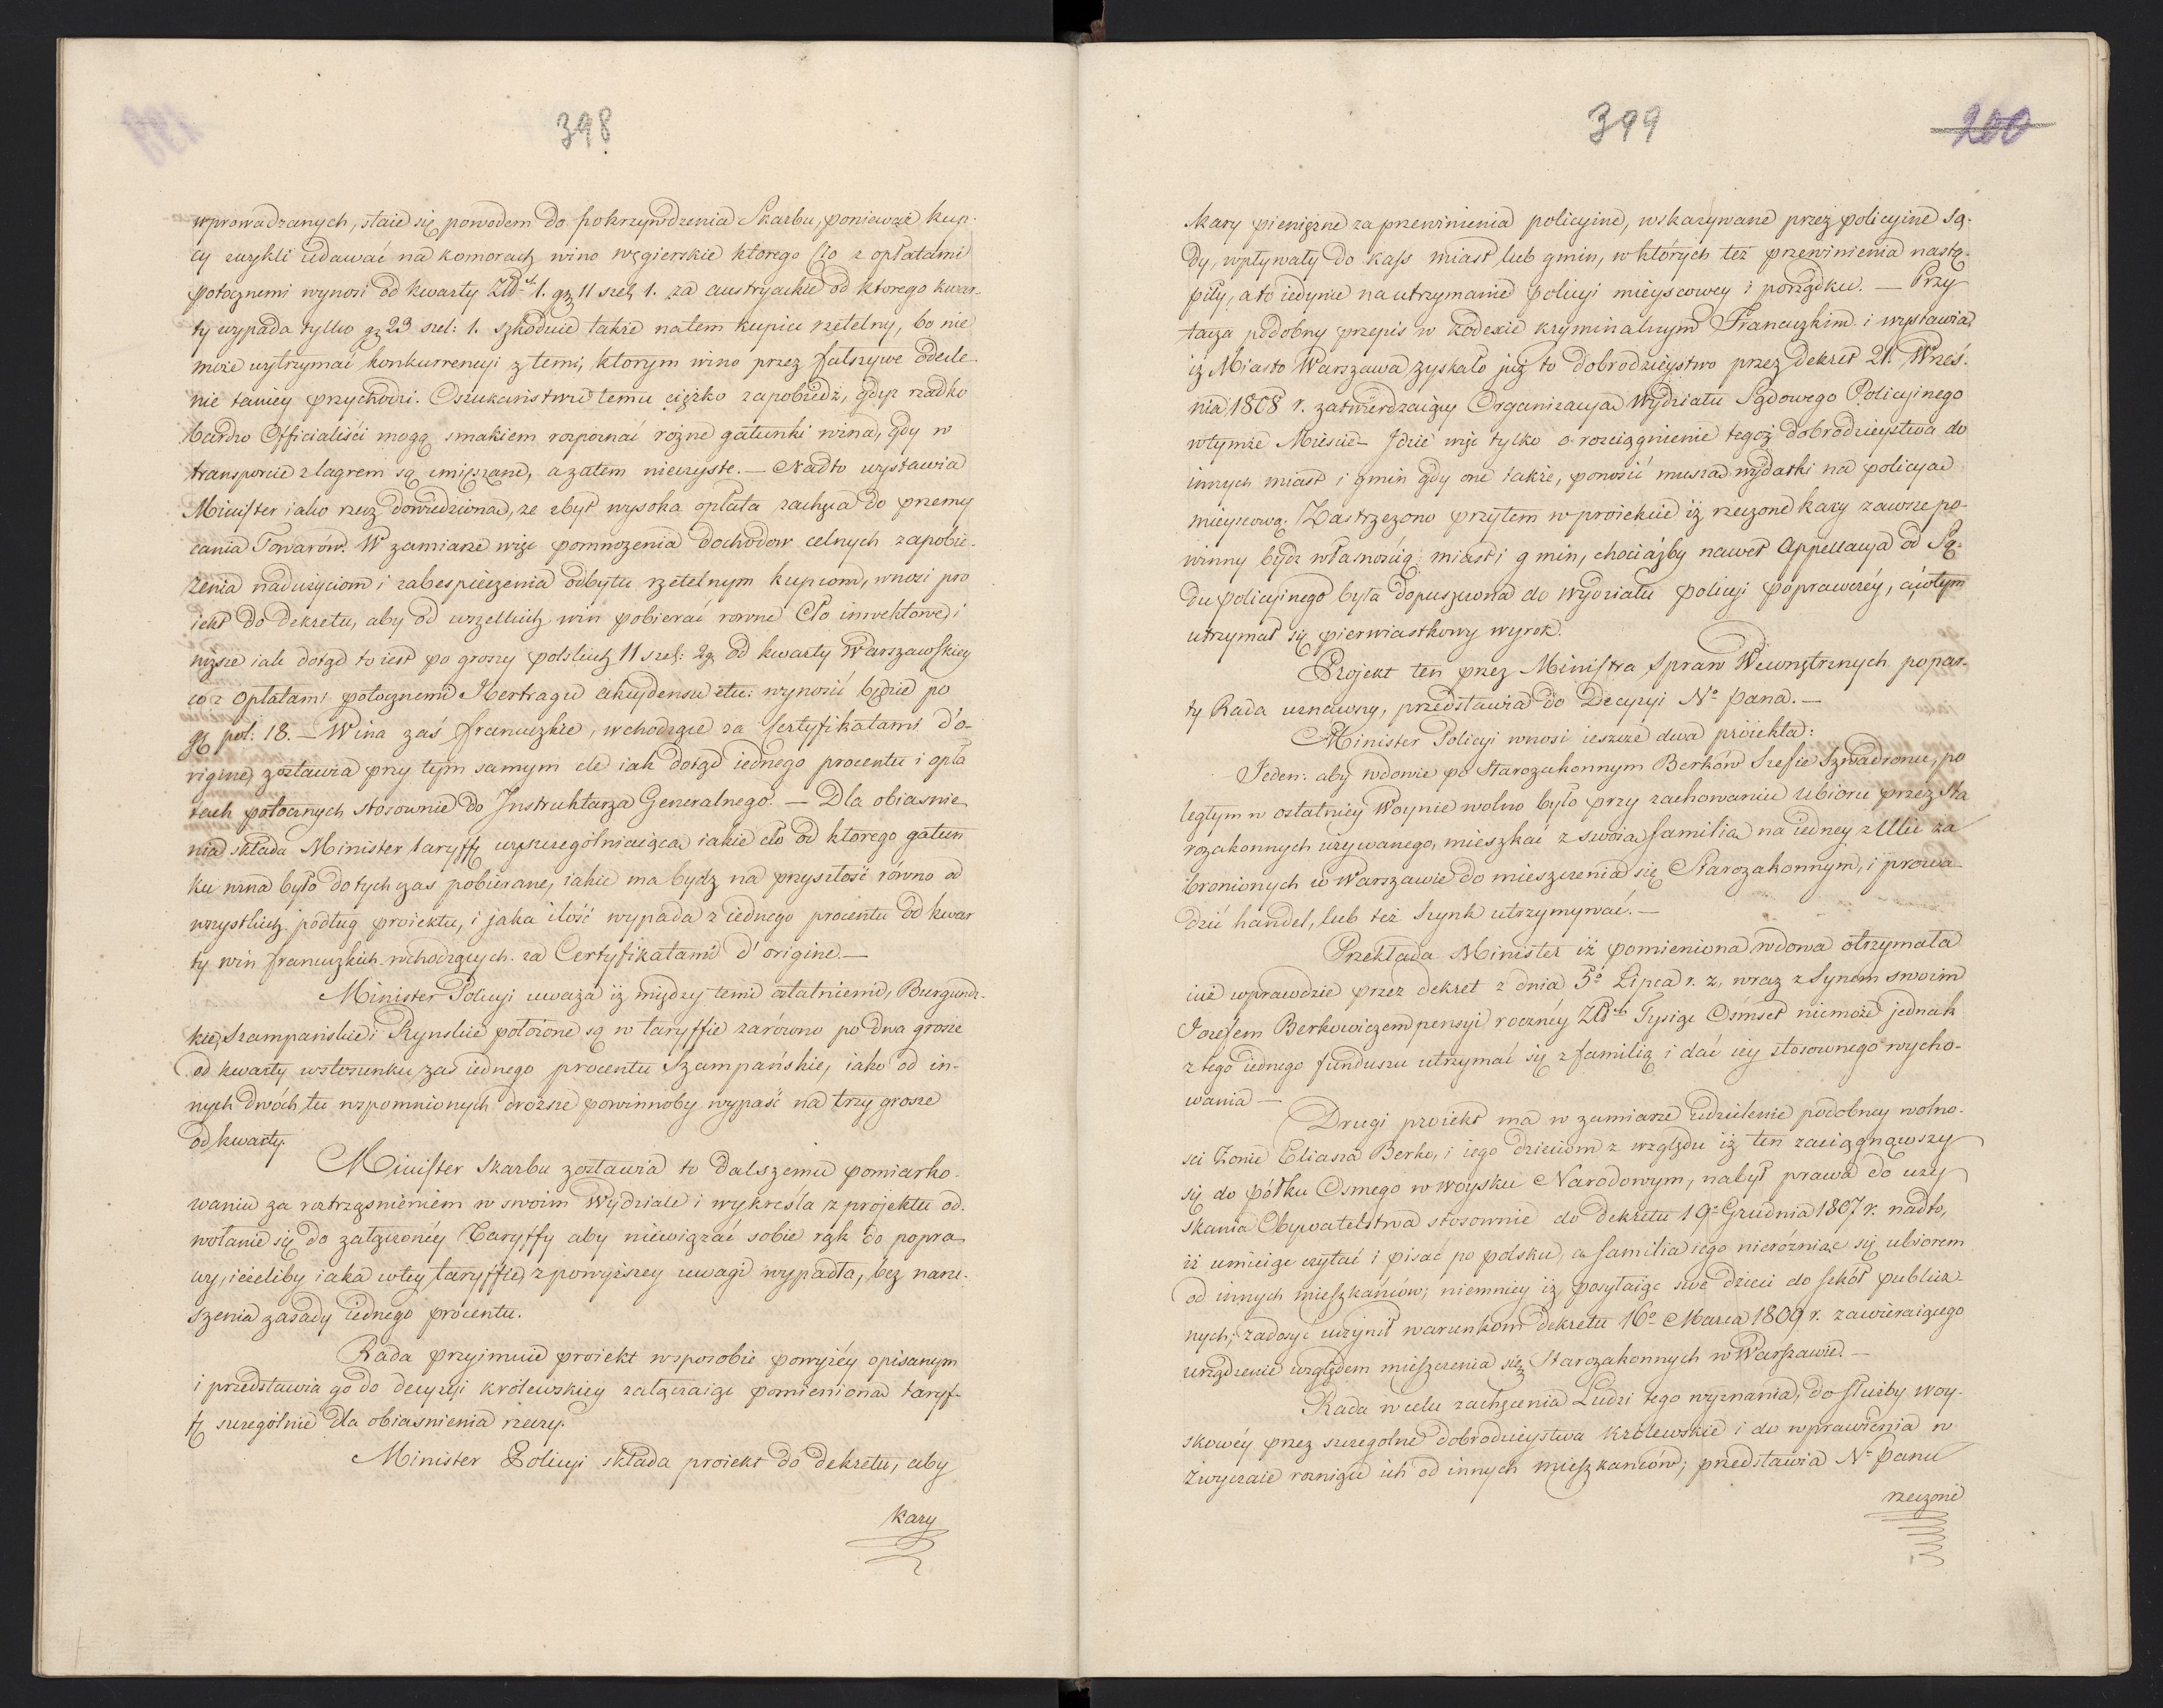 398
wprowadzanych, staie się powodem do pokrzywdzenia Skarbu, ponieważ kup-
cy zwykli udawać na komorach wino węgierskie ktorego Cło z opłatami
potocznemi wynosi od kwarty Złł. 1. gr 11 szel. 1. za austryackie od ktorego kwar-
ty wypada tylko gr 23 szel: 1. szkoduie także natem kupiec rzetelny, bo nie
może wytrzymać konkurrencyi z temi, ktorym wino przez fałszywe odecle-
nie taniey przychodzi. Oszukaństwu temu ciężko zapobiedz, gdyż rzadko
bardzo Officialiści mogą smakiem rozpoznać rożne gatunki wina, gdy w
transporcie z lagrem są zmięszane, a zatem nieczyste. — Nadto wystawia
Minister iako rzecz dowiedzioną, ze zbyt wysoka opłata zachęca do przemy
cania Towarów. W zamiarze więc pomnożenia dochodow celnych zapobie-
żenia nadużyciom i zabespieczenia odbytu rzetelnym kupcom, wnosi pro
iekt do dekretu, aby od wszelkich win pobierać rowne Cło inwektowe, i
niższe iak dotąd to iest po groszy polskich 11 szel: 2 gr od kwarty Warszawskiey
co z opłatami potocznemi Hertragu akcydensu etc: wynosić będzie po
gr pol: 18. — Wina zaś francuzkie, wchodzące za Certyfikatami d'o-
rigine, zostawia przy tym samym cle iak dotąd iednego procentu i opła
tach potocznych stosownie do Instruktarza Generalnego. — Dla obiaśnie
nia składa Minister taryffę wyszczególniaiącą iakie cło od ktorego gatun
ku wina było dotychczas pobierane, iakie ma bydz na przyszłość równo od
wszystkich podług proiektu, i jaka ilość wypada z iednego procentu od kwar
ty win francuzkich wchodzących za Certyfikatami d'origine. —
Minister Policyi uważa iż między temi ostatniemi, Burgundz-
kie, Szampańskie i Ryńskie położone są w taryffie zarówno po dwa grosze
od kwarty wstosunku zaś iednego procentu Szampańskie, iako od in-
nych dwóch tu wspomnionych droższe powinnoby wypaść na trzy grosze
od kwarty.
Minister Skarbu zostawia to dalszemu pomiarko-
waniu za roztrząśnieniem w swoim Wydziale i wykreśla z projektu od-
wołanie się do załączonéy Taryffy aby niewiązać sobie rąk do popra
wy, ieżeliby iaka wtey taryffie, z powyższey uwagi wypadła, bez naru-
szenia zasady iednego procentu.
Rada przyimuie proiekt wsposobie powyżéy opisanym
i przedstawia go do decyzyi królewskiey załączaiąc pomienioną taryf-
fę szczególnie dla obiaśnienia rzeczy.
Minister Policyi składa proiekt do dekretu, aby
kary
399
200
kary pieniężne za przewinienia policyine, wskazywane przez policyine są-
dy, wpływały do kass miast lub gmin, w których też przewinienia nastą-
piły, a to iedynie na utrzymanie policyi mieyscowey i porządku. — Przy
tacza podobny przepis w kodexie kryminalnym Francuzkim i wystawia,
iż Miasto Warszawa zyskało już to dobrodzieystwo przez dekret 21. Wrześ-
nia 1808 r. zatwierdzaiący Organizacyą Wydziału Sądowego Policyinego
wtymże Mieście – Idzie więc tylko o rosciągnienie tegoż dobrodzieystwa do
innych miast i gmin gdy one także, ponosić muszą wydatki na policyą
mieyscową. Zastrzeżono przytem w proiekcie iż rzeczone kary zawsze po-
winny bydz własnością miast i gmin, chociażby nawet Appellacya od Są-
du policyinego była dopuszczona do wydziału policyi poprawczéy, a wtym
utrzymał się pierwiastkowy wyrok.
Projekt ten przez Ministra Spraw Wewnętrznych popar-
ty Rada uznawszy, przedstawia do Decyzyi No Pana. —
Minister Policyi wnosi ieszcze dwa proiekta:
Jeden: aby wdowie po Starozakonnym Berków Szefie Szwadronu, po
ległym w ostatniey Woynie wolno było przy zachowaniu Ubioru przez Sta
rozakonnych używanego, mieszkać z swoią familią na iedney z Ulic za
bronionych w Warszawie do mieszczenia się Starozakonnym, i prowa-
dzić handel, lub też Szynk utrzymywać. —
Przekłada Minister iż pomieniona wdowa otrzymała
iuż wprawdzie przez dekret z dnia 5o Lipca r. z. wraz z Synem swoim
Jozefem Berkowiczem pensyi rocznéy Złł. Tysiąc Ośmset niemoże jednak
z tego iednego funduszu utrzymać się z familią i dać iey stosownego wycho-
wania —
Drugi proiekt ma w zamiarze udzielenie podobney wolno-
sci Żonie Eliasza Berko, i iego dzieciom z względu iż ten zaciągnąwszy
się do półku Osmego w woysku Narodowym, nabył prawa do uzy
skania Obywatelstwa stosownie do dekretu 19o Grudnia 1807 r. nadto,
iż umieiąc czytać i pisać po polsku, a familia iego nieróżniąc się ubiorem
od innych mieszkańców; niemniey iż posyłaiąc swe dzieci do szkół publicz-
nych, zadosyć uczynił warunkom dekretu 16o Marca 1809 r. zawieraiącego
urządzenie względem mieszczenia się Starozakonnych w Warszawie. —
Rada w celu zachęcenia Ludzi tego wyznania, do służby woy-
skowéy przez szczególne dobrodzieystwa Królewskie i do wprawienia w
Zwyczaie rożniące ich od innych mieszkańców; przedstawia No Panu
rzeczone